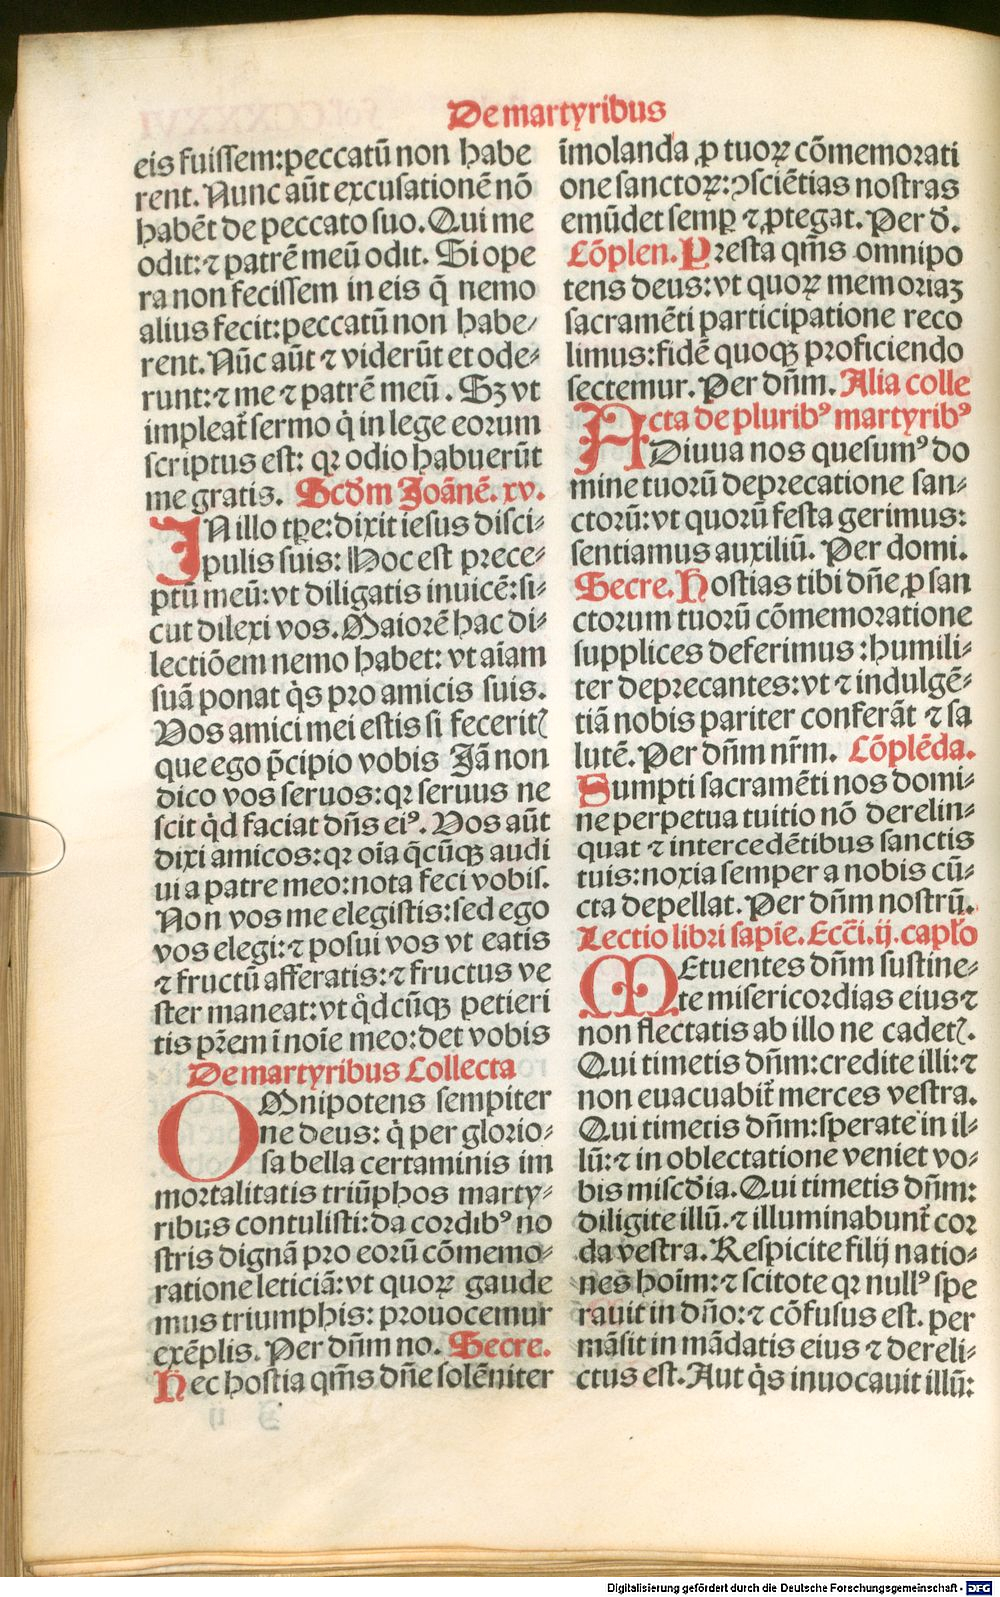 De martyribus
eis fuissem: peccatū non habe
rent. Nunc aūt excusationē nō
habēt de peccato suo. Qui me
odit: ⁊ patrē meū odit. Si ope
ra non fecissem in eis q̄ nemo
alius fecit: peccatū non habe⸗
rent. Nūc aūt ⁊ viderūt et ode⸗
runt: ⁊ me ⁊ patrē meū. Sꝫ vt
impleat̄ sermo q̇ in lege eorum
scriptus est: qꝛ odio habuerūt
me gratis. Scďm Joānē. xv.
IN illo tꝑe: dixit iesus disci⸗
pulis suis: Hoc est prece⸗
ptū meū: vt diligatis inuicē: si⸗
cut dilexi vos. Maiorē hac di⸗
lectiōem nemo habet: vt aīam
suā ponat q̇s pro amicis suis.
Vos amici mei estis si feceritꝭ
que ego p̄cipio vobis Jā non
dico vos seruos: qꝛ seruus ne
scit q̇d faciat dn̄s eiꝰ. Vos aūt
dixi amicos: qꝛ oīa q̄cūqꝫ audi
ui a patre meo: nota feci vobis.
Non vos me elegistis: sed ego
vos elegi: ⁊ posui vos vt eatis
⁊ fructū afferatis: ⁊ fructus ve
ster maneat: vt q̇dcūqꝫ petieri
tis pr̄em ī noīe meo: det vobis
De martyribus Collecta
OMnipotens sempiter
ne deus: q̇ per glorio⸗
sa bella certaminis im
mortalitatis triūphos marty⸗
ribus contulisti: da cordibꝰ no
stris dignā pro eorū cōmemo⸗
ratione leticiā: vt quoꝝ gaude
mus triumphis: prouocemur
exēplis. Per dn̄m no. Secre.
Hec hostia qm̄s dn̄e solēniter
īmolanda ꝓ tuoꝝ cōmemorati
one sanctoꝝ: ꝯsciētias nostras
emūdet semꝑ ⁊ ꝓtegat. Per d̄.
Cōplen. Presta qm̄s omnipo
tens deus: vt quoꝝ memoriaꝫ
sacramēti participatione reco
limus: fidē quoqꝫ proficiendo
sectemur. Per dn̄m. Alia colle
cta de pluribꝰ martyribꝰ
ADiuua nos quesumꝰ do
mine tuorū deprecatione san⸗
ctorū: vt quorū festa gerimus:
sentiamus auxiliū. Per domi.
Secre. Hostias tibi dn̄e, ꝓ san
ctorum tuorū cōmemoratione
supplices deferimus: humili⸗
ter deprecantes: vt ⁊ indulgē⸗
tiā nobis pariter conferāt ⁊ sa
lutē. Per dn̄m nr̄m. Cōplēda.
Sumpti sacramēti nos domi⸗
ne perpetua tuitio nō derelin⸗
quat ⁊ intercedētibus sanctis
tuis: noxia semper a nobis cū⸗
cta depellat. Per dn̄m nostrū.
Lectio libri sapīe. Ecc̄i. ij. capl̓o
MEtuentes dn̄m sustine⸗
te misericordias eius ⁊
non flectatis ab illo ne cadetꝭ.
Qui timetis dn̄m: credite illi: ⁊
non euacuabit̄ merces vestra.
Qui timetis dn̄m: sperate in il⸗
lū: ⁊ in oblectatione veniet vo⸗
bis miscďia. Qui timetis dn̄m:
diligite illū. ⁊ illuminabunt̄ cor
da vestra. Respicite filij natio⸗
nes hoīm: ⁊ scitote qꝛ nullꝰ spe
rauit in dn̄o: ⁊ cōfusus est. per
māsit in mādatis eius ⁊ dereli⸗
ctus est. Aut q̇s inuocauit illū:
Digitalisierung gefördert durch die Deutsche Forschungsgemeinschaft - DFG